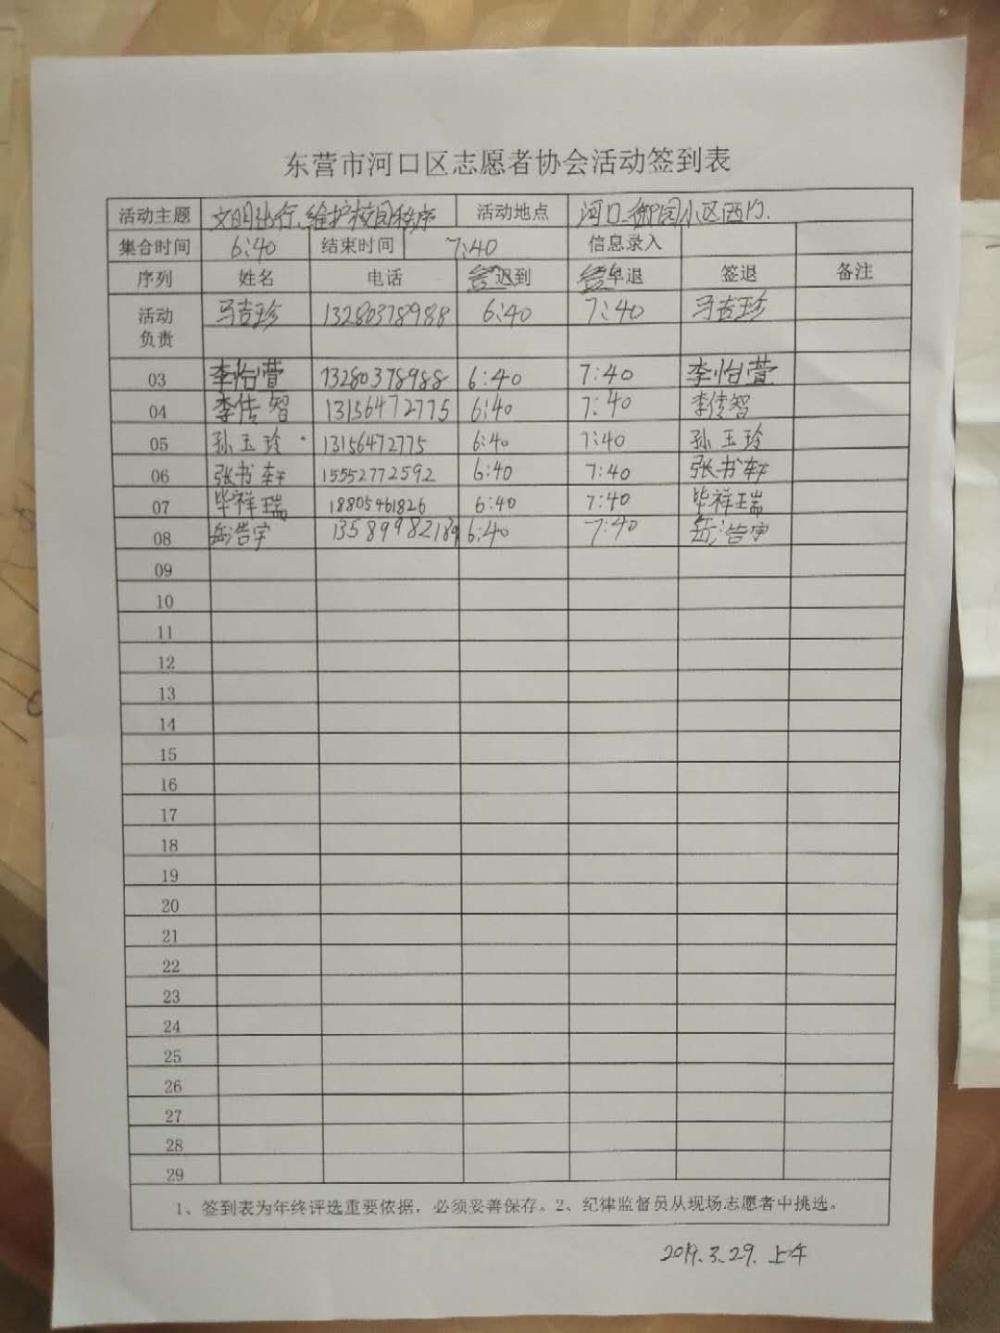 东营市河口区志愿者协会活动签到表
活动主题 文明出行、维护校园秩序 活动地点 河口 御园小区西门.
集合时间 6:40 结束时间 7:40 信息录入
序列 姓名 电话 签迟到 签早退 签退 备注
活动负责 马吉珍 13280378988 6:40 7:40 马吉珍
03 李怡萱 13280378988 6:40 7:40 李怡萱
04 李传智 13156472775 6:40 7:40 李传智
05 孙玉玲 13156472775 6:40 7:40 孙玉玲
06 张书轩 15552772592 6:40 7:40 张书轩
07 毕祥瑞 18805461826 6:40 7:40 毕祥瑞
08 岳浩宇 13589982189 6:40 7:40 岳浩宇
09
10
11
12
13
14
15
16
17
18
19
20
21
22
23
24
25
26
27
28
29
1、签到表为年终评选重要依据，必须妥善保存。2、纪律监督员从现场志愿者中挑选。
2019.3.29. 上午